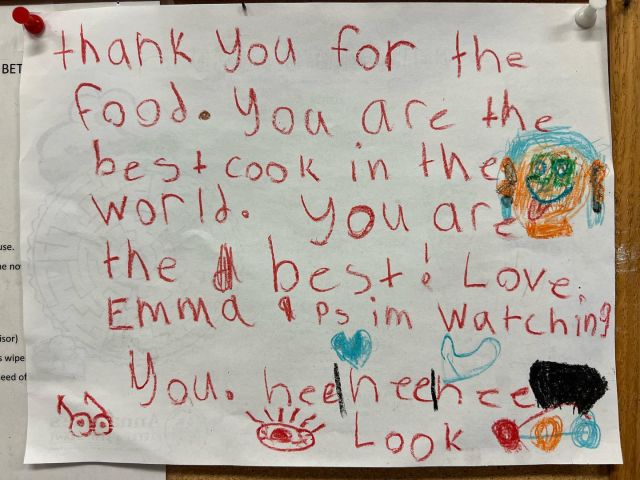 BET
thank you for the
food. You are the
best cook in the
world. You are
the best! Love,
Emma Ps im watching
You. hee hee hee
Look
use.
e no
isor)
s wipe
eed of